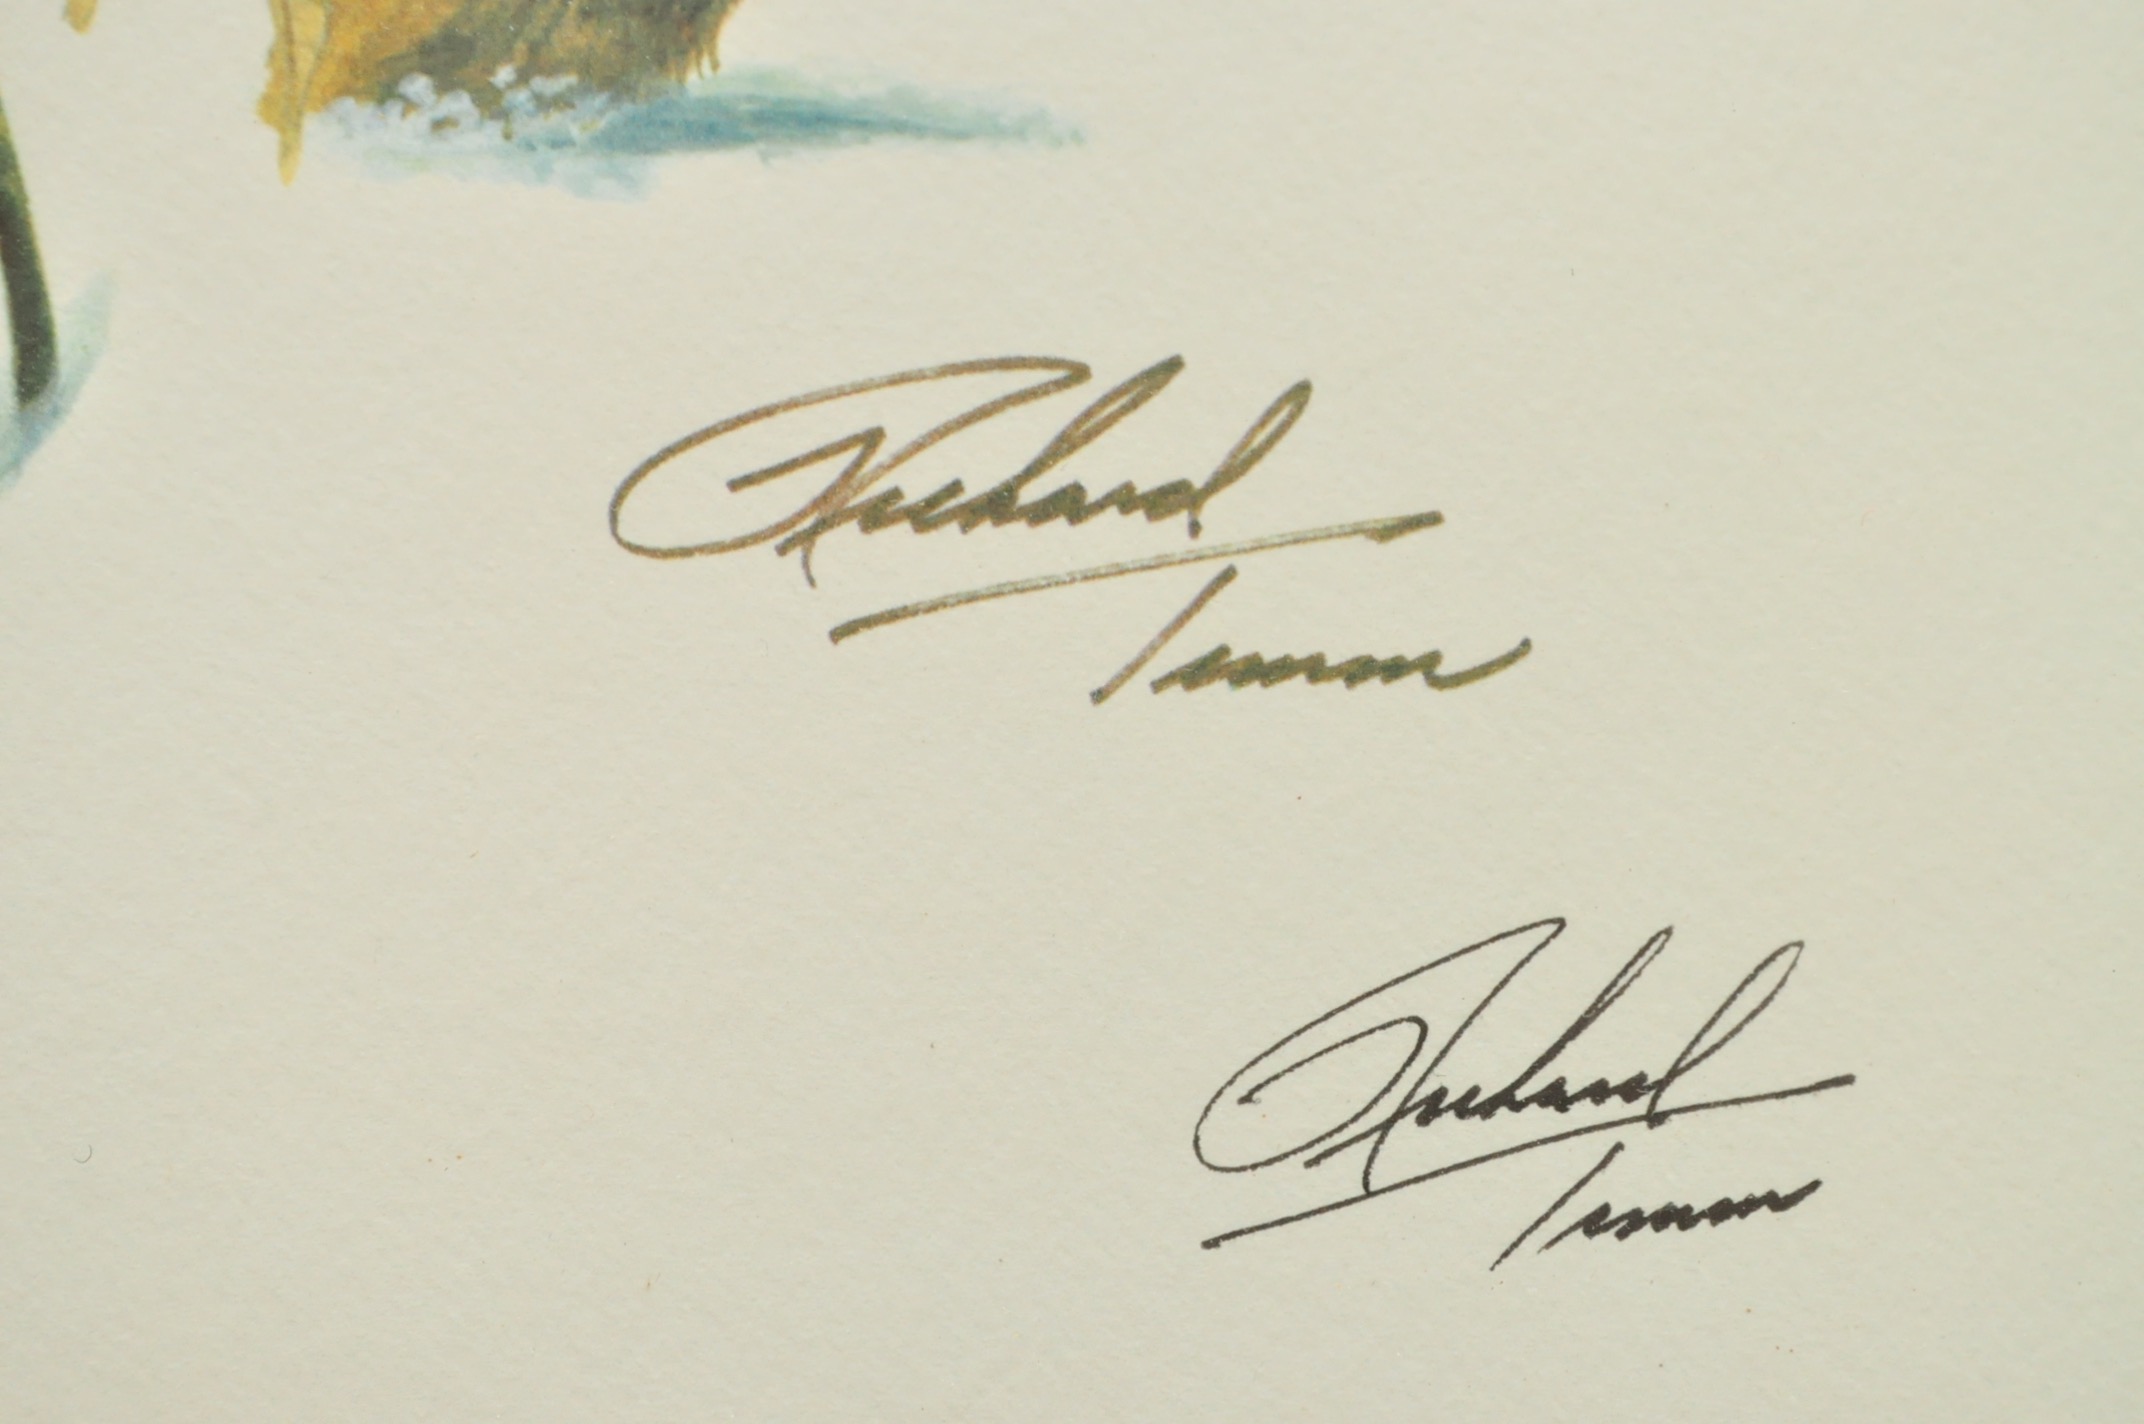 Richard
Timm
Richard
Timm